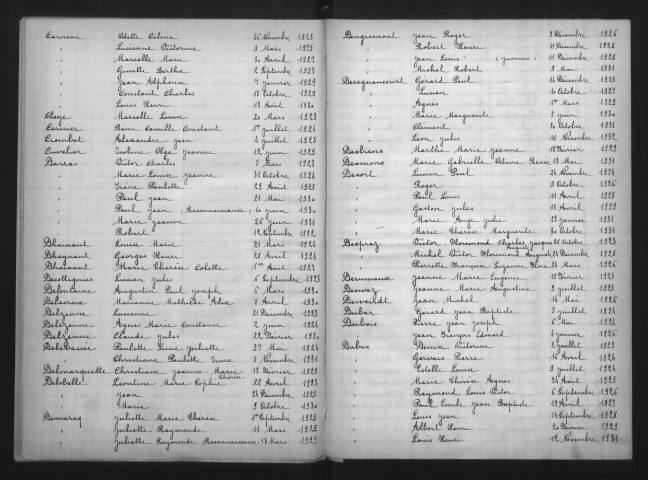 Carneau Odette Célina 26 Décembre 1923
" Lucienne Victorine 3 Mars 1925
" Marcelle Marie 30 Avril 1927
" Ginette Bertha 2 Septembre 1927
" Jean Alphonse 7 Janvier 1929
" Constant Charles 18 Octobre 1929
" Louis Henri 18 Août 1930
Claye Marcelle Louise 20 Mars 1923
Cerisier Camille Constant 1er Juillet 1924
Crombet Alexandre Jean 4 Juillet 1925
Cuvelier Olga Jeanne 12 Juin 1929
Darras Victor Charles 7 Mars 1923
" Marie Louise Jeanne 31 Octobre 1924
" Irène Paulette 29 Août 1925
" Paul Jean 21 Mai 1930
" Paul Jean (Reconnaissance) 10 Juin 1930
" Marie Jeanne 26 Juin 1931
" Robert 12 Septembre 1932
Dhainaut Louise Marie 21 Mars 1924
Dhaynaut Georges Henri 28 Avril 1924
Dhainaut Marie Thérèse Colette 1er Août 1927
Lucien Jules 6 Septembre 1923
Defontaine Augustin Paul Joseph 6 Mars 1930
Delacroix Marianne Mathilde 8 Avril 1930
Delzenne Lucienne 21 Décembre 1923
Delezenne Agnès Marie Constance 2 Juin 1924
Delzenne Claude Jules 22 Février 1930
Delevacque Paulette Louise Juliette 27 Mai 1924
" Christiane Paulette 8 Novembre 1931
Delmarquette Christiane Jeanne Marie Thérèse 13 Février 1923
Delobelle Léontine Marie Sophie 28 Avril 1923
" Jean 24 Décembre 1928
" Marie 9 Octobre 1930
Demarcq Juliette Marie Thérèse 1er Septembre 1928
" Juliette Raymonde 11 Mars 1929
" Juliette Raymonde (Reconnaissance) 18 Mars 1929
Dengremont Jean Roger 9 Décembre 1926
" Robert Henri 11 Décembre 1928
" Jean Louis (jumeau) 11 Décembre 1928
" Michel Robert 9 Mai 1931
Deregnaucourt Gérard Paul 18 Décembre 1925
" Lucien 10 Octobre 1927
" Agnès 1er Mars 1929
" Marie Marguerite 7 Juin 1930
" Clément 30 Octobre 1931
" Léon Jules 10 Novembre 1932
Marthe Marie Jeanne 18 Février 1923
Desmons Marie Gabrielle Octavie Renée 13 Mai 1931
Désort Lucien Paul 24 Novembre 1924
" Roger 2 Octobre 1926
" Paul Louis 11 Avril 1928
" Gaston Jules 15 Avril 1929
" Marie Ange Julie 23 Janvier 1931
" Marie Thérèse Marguerite 30 Octobre 1931
Desprez Victor Florimond Charles Jacques 26 Octobre 1923
" Michel Victor Florimond Auguste 24 Décembre 1925
" Pierrette Françoise Suzanne 24 Mars 1926
Derumaux Jeanne Marie Eugénie 18 Février 1925
Jeanne Marie Augustine 9 Juillet 1925
Jean Michel 14 Mai 1926
Dubar Gérard Jean Baptiste 3 Juillet 1924
Dubois Pierre Jean Joseph 6 Mai 1924
" Jean François Edouard 4 Janvier 1926
Dubus Denise Victorine 2 Juillet 1923
" Gervais Pierre 16 Avril 1924
" Estelle Louise 9 Juillet 1924
" Marie Thérèse Agnès 24 Août 1925
" Raymond Louis Victor 6 Septembre 1926
" Paul Emile Jean Baptiste 19 Avril 1927
" Louis Jean 14 Septembre 1928
" Albert Henri 20 Février 1929
" Louis Henri 12 Novembre 1931